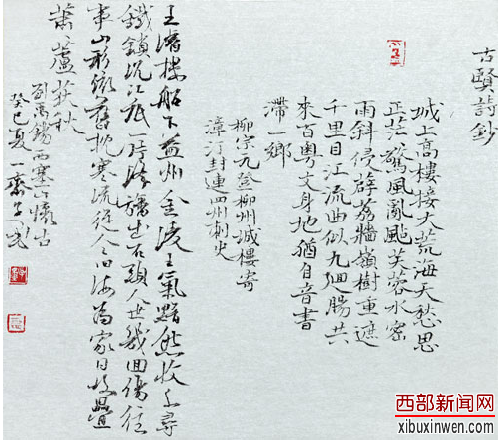 古賢詩鈔
城上高樓接大荒海天愁思
正茫〻驚風亂颭芙蓉水密
雨斜侵薜荔牆嶺樹重遮
千里目江流曲似九廻腸共
來百粵文身地猶自音書
滯一鄉
柳宗元登柳州城樓寄
漳汀封連四州刺史
王濬樓船下益州金陵王氣黯然收千尋
鐵鎖沉江底一片降旛出石頭人世幾回傷往
事山形依舊枕寒流從今四海為家日故壘
蕭〻蘆荻秋
劉禹錫西塞山懷古
癸巳夏一齋
西部新闻网
xibuxinwen.com